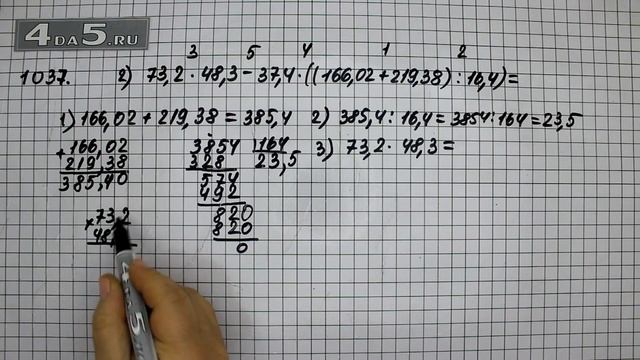 4DA5.RU
3 5 4 1 2
1037. 2) 73,2 · 48,3 - 37,4 · ((166,02 + 219,38) : 16,4) =
1) 166,02 + 219,38 = 385,4 2) 385,4 : 16,4 = 3854 : 164 = 23,5
3) 73,2 · 48,3 =
+ 166,02
219,38
385,40
3854 164
328 23,5
574
492
820
820
0
× 73,2
48,
4DA5